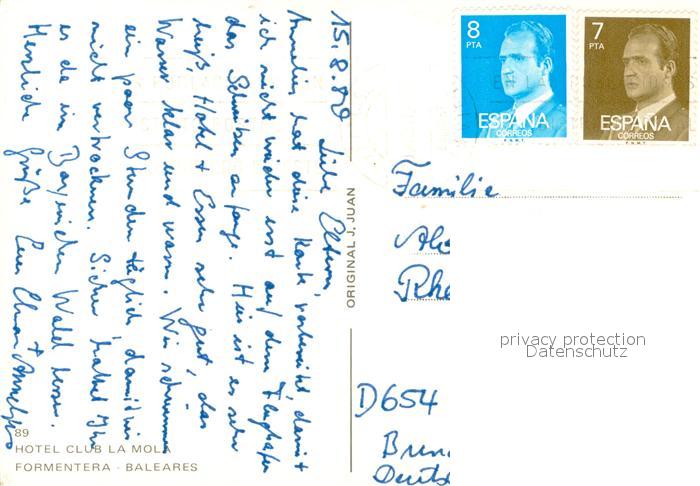 15.8.80 Liebe Eltern,
Annelies hat diese Karte vorbereitet, damit
ich nicht wieder erst auf dem Flughafen
das Schreiben anfange. Hier ist es sehr
heiß, Hotel + Essen sehr gut, das
Wasser klar und warm. Wir schwimmen
ein paar Stunden täglich, damit wir
nicht vertrocknen. Sicher habt Ihr
es da im Bayrischen Wald besser.
Herzliche Grüße Eure +
8
PTA
ESPAÑA
CORREOS
F.N.M.T.
7
PTA
ESPAÑA
CORREOS
F.N.M.T.
Familie
D654
ORIGINAL J. JUAN
privacy protection
Datenschutz
89
HOTEL CLUB LA MOLA
FORMENTERA - BALEARES